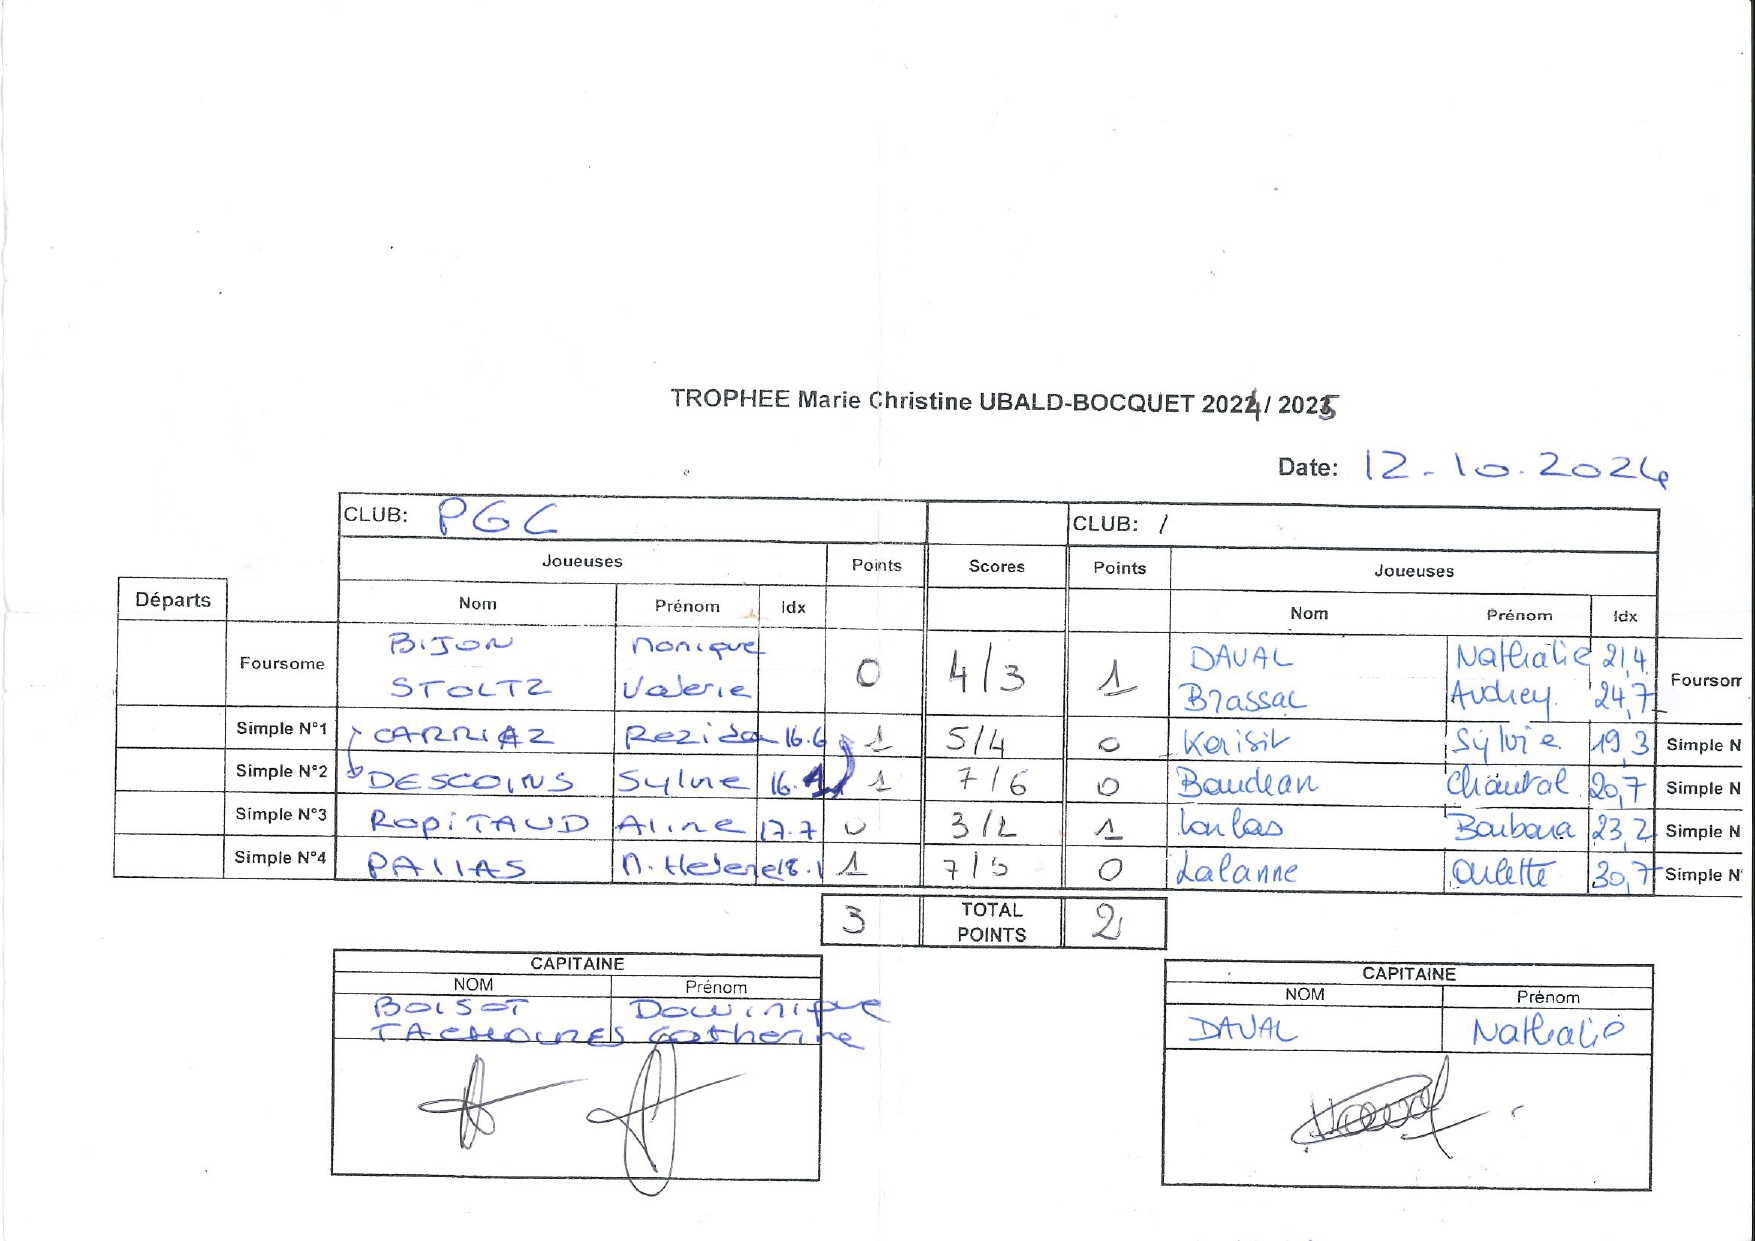 TROPHEE Marie Christine UBALD-BOCQUET 2024/ 2025
Date: 12-10.2024
CLUB: PGC CLUB: /
Joueuses Points Scores Points Joueuses
Départs Nom Prénom Idx Nom Prénom Idx
BIJON Monique DAVAL Nathalie 21,4
Foursome 0 4/3 1 Foursom
STOLTZ Valerie Brassac Audrey 24,7
Simple N°1 CARRIAZ 16.6 1 5/4 0 Sylvie 19,3 Simple N
Simple N°2 DESCOINS Sylvie 16. 1 7/6 0 Baudean Chantal 20,7 Simple N
Simple N°3 ROPITAUD Aline 17.7 0 3/2 1 23,2 Simple N
Simple N°4 PALLAS M. Helene 18.1 1 7/5 0 Lalanne 30,7 Simple N°
3 TOTAL POINTS 2
CAPITAINE CAPITAINE
NOM Prénom NOM Prénom
BOISOT Dominique DAVAL Nathalie
TACHOURES Catherine